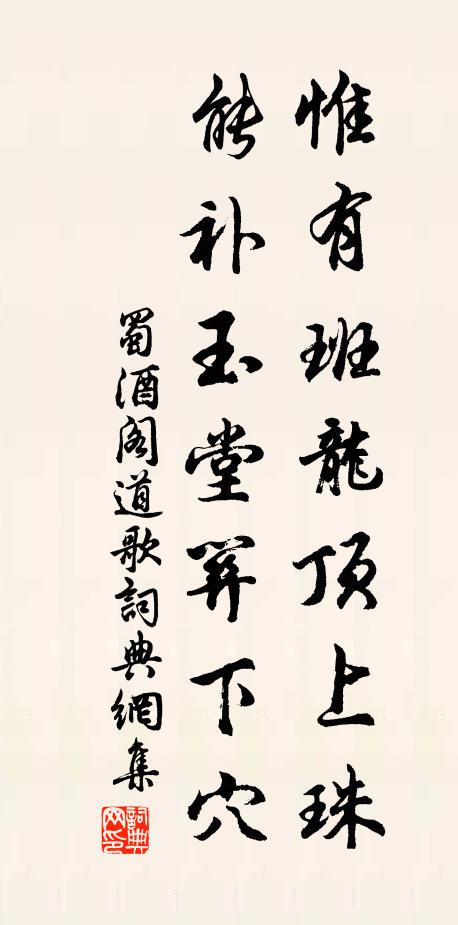 惟有班龍頂上珠
能补玉堂關下穴
蜀酒閣道歌詞典網集
詞典网印